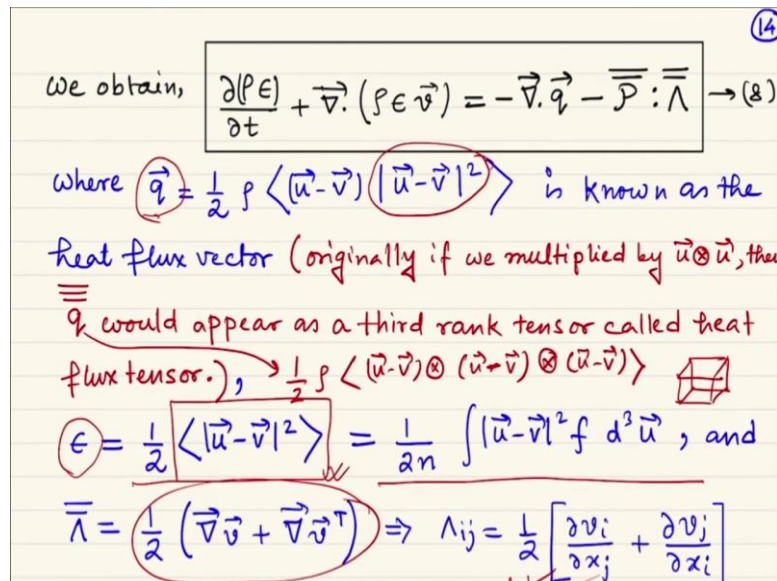 14
we obtain, ∂(ρϵ)/∂t + ∇⃗.(ρϵv⃗) = -∇⃗.q⃗ - P̿:Λ̿ → (8)
where q⃗ = 1/2 ρ <(u⃗-v⃗) |u⃗-v⃗|²> is known as the
heat flux vector (originally if we multiplied by u⃗⊗u⃗, then
q would appear as a third rank tensor called heat
flux tensor.), 1/2 ρ <(u⃗-v⃗)⊗(u⃗-v⃗)⊗(u⃗-v⃗)>
ϵ = 1/2 <|u⃗-v⃗|²> = 1/2n ∫|u⃗-v⃗|² f d³u⃗, and
Λ̿ = 1/2 (∇⃗v⃗ + ∇⃗v⃗ᵀ) ⇒ Λij = 1/2 [∂vi/∂xj + ∂vj/∂xi]